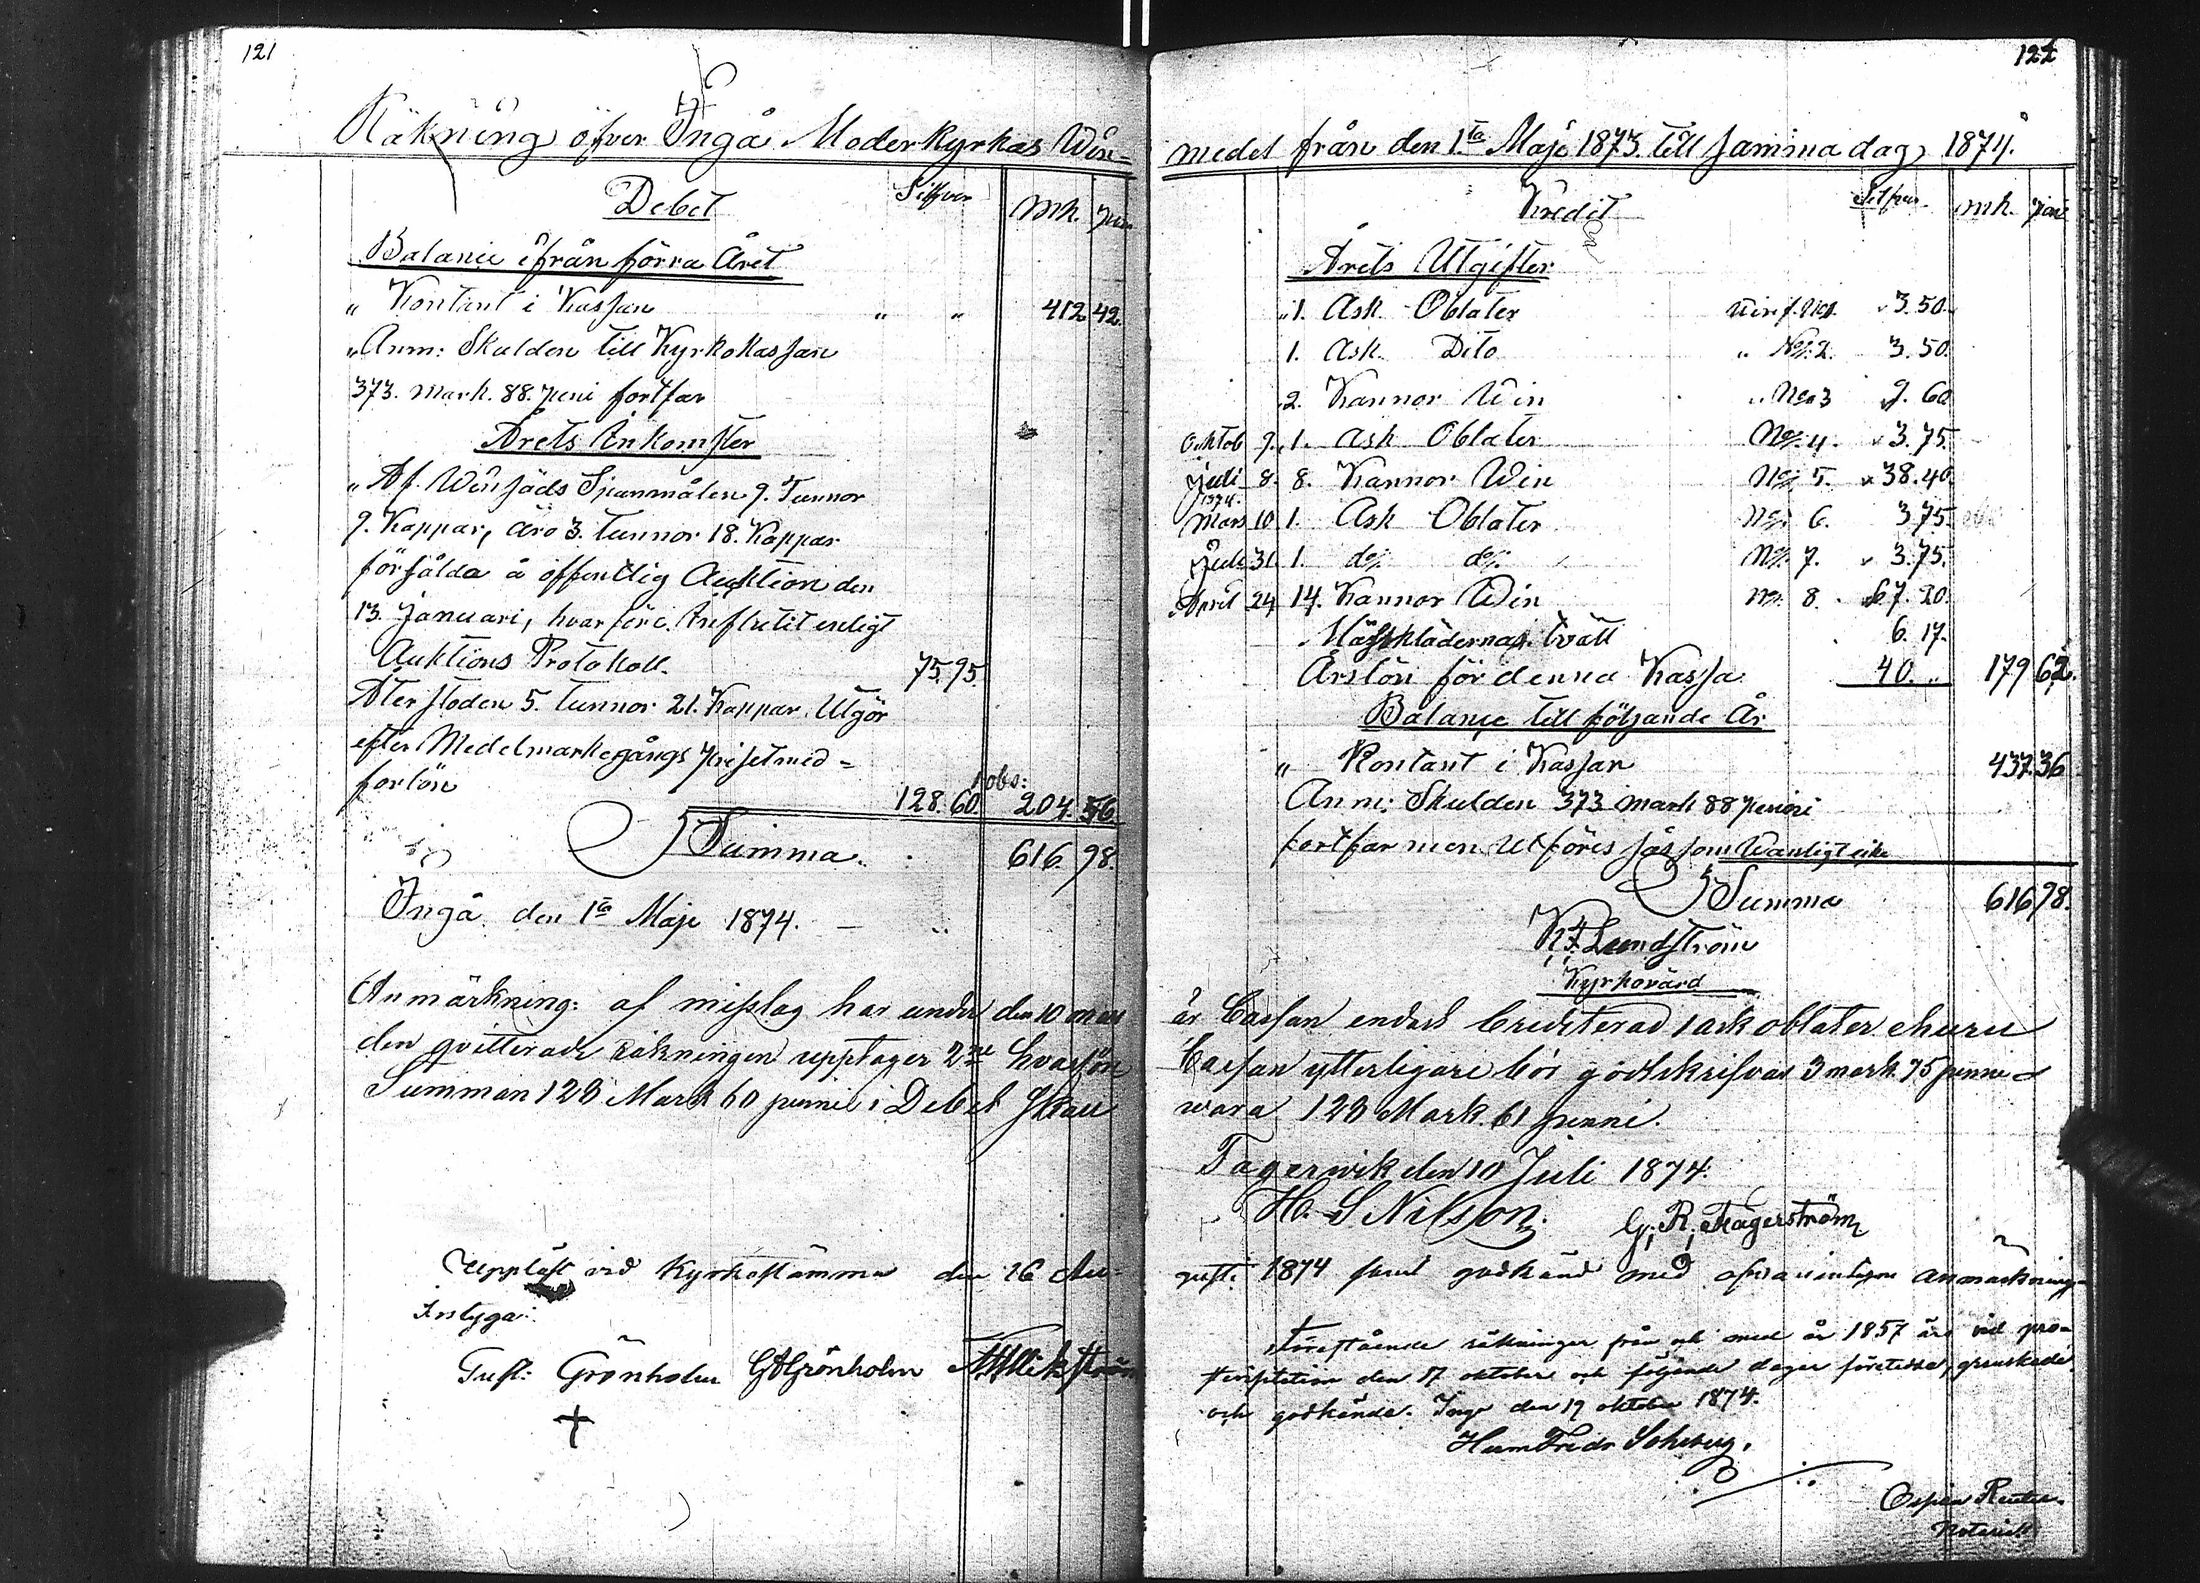 121
Räkning öfver Ingå Moderkyrkas Win=
Debet Silfver Mk. pni
Balance ifrån förra Året
" Kontant i Kassan " " 412 42.
" Anm: Skulden till Kyrkokassan
373. Mark. 88. peni fortfar
Årets Inkomster
" Af Winsäds Spanmålen 9. Tunnor
9. Kappar, äro 3. tunnor 18. Kappar
försålda å offentlig Auktion den
13. Januari, hvarföre influtit enligt
Auktions Protokoll. 75.95.
Återstoden 5. tunnor 21. Kappar. Utgör
efter Medelmarkegångs priset med =
forlön 128.60. obs: 204. 56.
Summa. 616. 98.
Ingå den 1ta Maji 1874.
Anmärkning: af misstag har under den 10 mars
den qvitterade räkningen upptager 2ne hvarföre
Summan 128 Mark 60 penni i Debet skall
Uppläst vid Kyrkostämma den 16 Au-
Intyga:
Gust: Grönholm G A Grönholm
122
medel från den 1ta Maji 1873. till samma dag, 1874.
Kredit Silfver mk. pni
Årets Utgifter
" 1. Ask Oblater No 1. 3.50.
1. Ask Dito " No 2. 3.50.
2. Kannor Win " No 3 9.60
Oktob 9. 1. Ask Oblater No 4. 3.75.
Juli 8. 8. Kannor Win No 5. 38.40.
1874.
Mars 10. 1. Ask Oblater No 6. 3.75.
31. 1. do/. do/. No 7. 3.75.
April 24 14. Kannor Win No. 8. 67.20.
Mässklädernas tvätt 6.17.
Årslön för denna Kassa 40. " 179 62.
Balance till följande År
" Kontant i Kassan 437.36
Anm: Skulden 373 mark 88 penni
fortfar men Utföres såsom Wanligt icke
Summa 616.98.
K. F. Lundström
Kyrkovärd
är Cassan endast Crediterad 1 ask oblater ehuru
Cassan ytterligare bör godtskrifvas 3 mark 75 penni
vara 128 Mark. 61 penni.
Fagervik den 10 Juli 1874.
H. S Nilson. G. R. Fagerström
gusti 1874 samt godkänd med anmärkning
Förestående räkningar från och med år 1857 äro vid pro-
stvisitation den 17 oktober och följande dagar företedda, granskade
och godkända. Ingå den 19 oktober 1874.
Herm Fredr Sohlberg.
Reuter.
Notarie